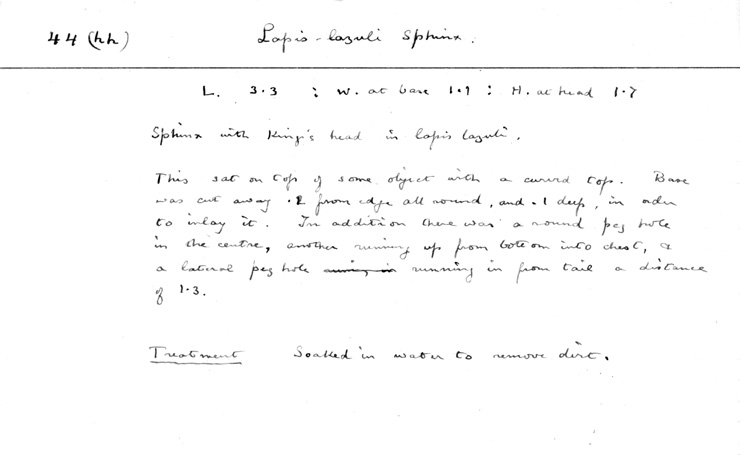 44 (hh) Lapis-lazuli Sphinx.
L. 3.3 : W. at base 1.1 : H. at head 1.7
Sphinx with King's head in lapis lazuli.
This sat on top of some object with a curved top. Base
was cut away .2 from edge all round, and .1 deep, in order
to inlay it. In addition there was a round peg hole
in the centre, another running up from bottom into chest, &
a lateral peg hole running in from tail a distance
of 1.3.
Treatment Soaked in water to remove dirt.